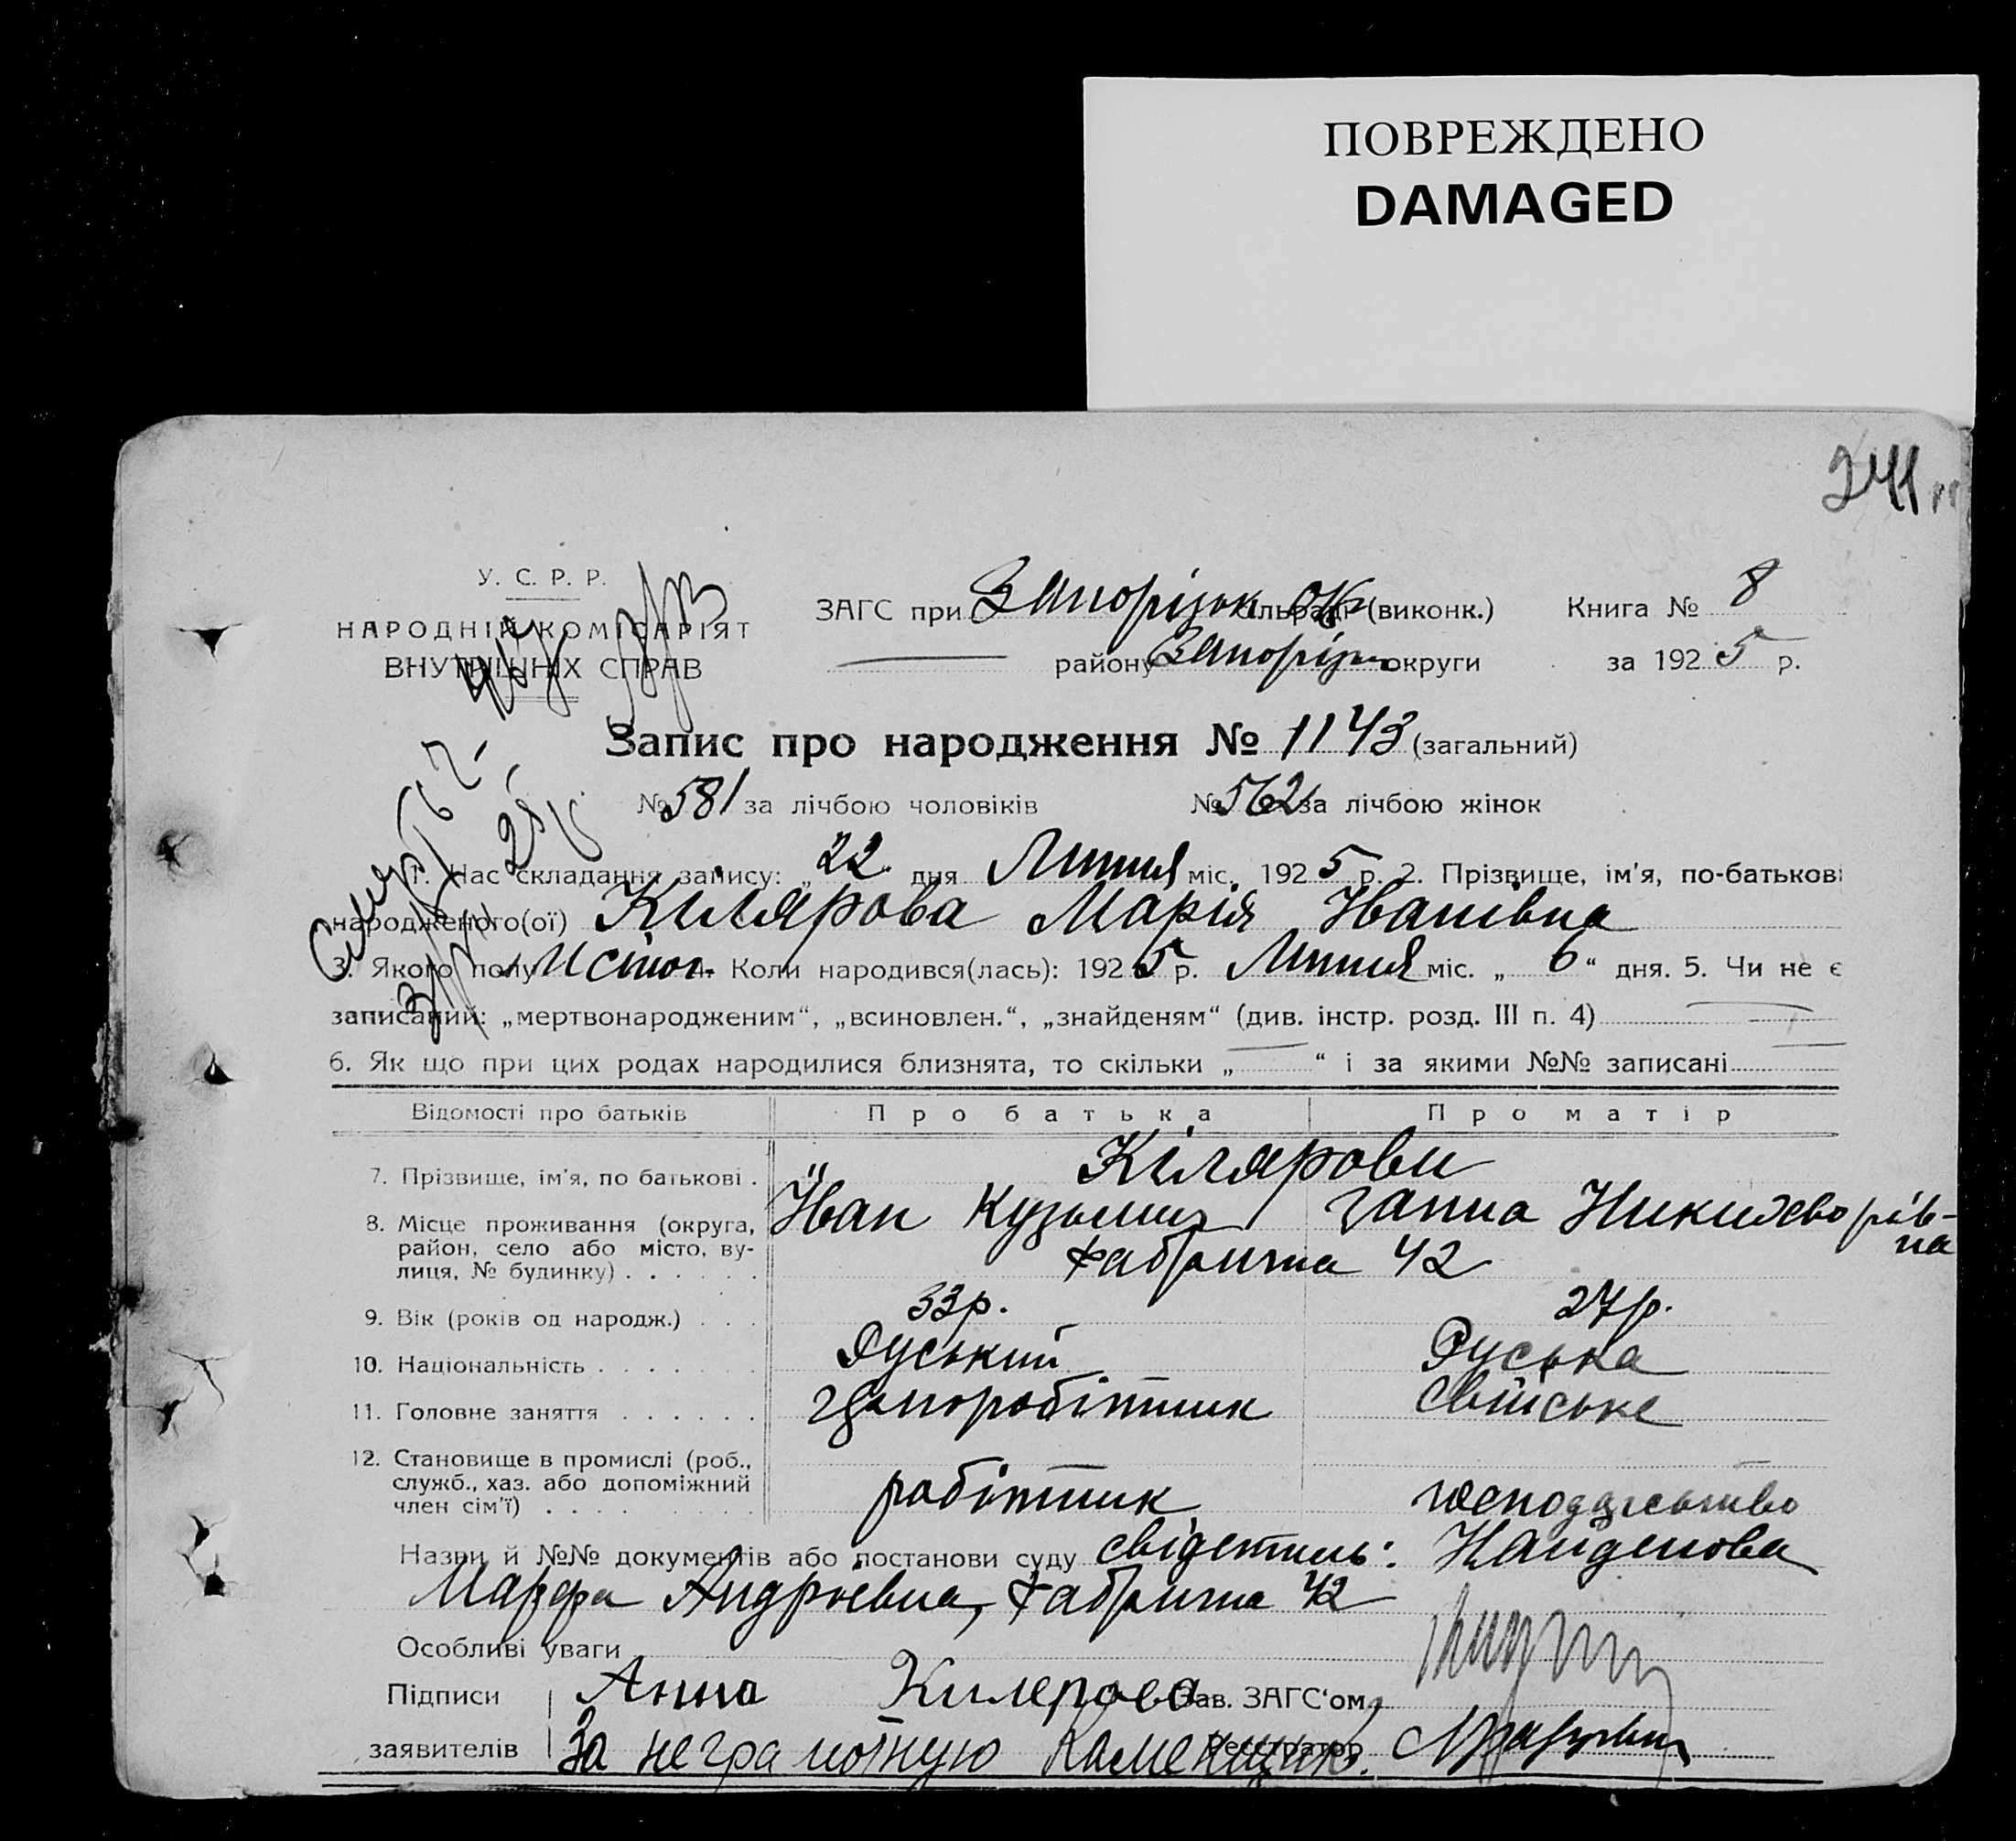 ПОВРЕЖДЕНО
DAMAGED
241
У. С. Р. Р.
НАРОДНІЙ КОМІСАРІЯТ
ВНУТРІШНІХ СПРАВ
ЗАГС при Запорізьк ок сільраді (виконк.) Книга № 8
району Запоріж округи за 1925 р.
Запис про народження № 1143 (загальний)
№ 581 за лічбою чоловіків № 562 за лічбою жінок
1. Час складання запису: „22" дня Липня міс. 1925 р. 2. Прізвище, ім'я, по-батькові
народженого(ої) Кілярова Марія Іванівна
3. Якого полу жіноч. 4. Коли народився(лась): 1925 р. Липня міс. „6" дня. 5. Чи не є
записаний: „мертвонародженим", „всиновлен.", „знайденям" (див. інстр. розд. III п. 4)
6. Як що при цих родах народилися близнята, то скільки „ — " і за якими №№ записані —
Відомості про батьків Про батька Про матір
Кілярови
7. Прізвище, ім'я, по батькові . Іван Кузьмич Ганна Никихворів-
на
8. Місце проживання (округа,
район, село або місто, ву-
лиця, № будинку) . . . . . . Фабрична 42
9. Вік (років од народж.) . . . 33р. 27р.
10. Національність . . . . . Руський Руська
11. Головне заняття . . . . . . чорноробітник свійське
12. Становище в промислі (роб.,
служб., хаз. або допоміжний
член сім'ї) . . . . робітник господарство
Назви й №№ документів або постанови суду свідетиль: Найденова
Марфа Андріївна, Фабрична 42
Особливі уваги
Підписи Анна Килерова Зав. ЗАГС'ом
заявителів За неграмотную Каменщик. Реєстратор